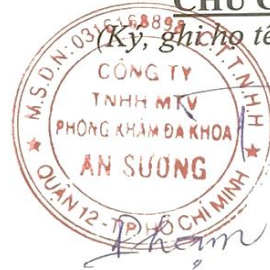 (Ký, ghi họ tê
M.S.D.N: 0316168899
T.N.H.H
CÔNG TY
TNHH MTV
PHÒNG KHÁM ĐA KHOA
AN SƯƠNG
QUẬN 12 - T.P HỒ CHÍ MINH
Phạm